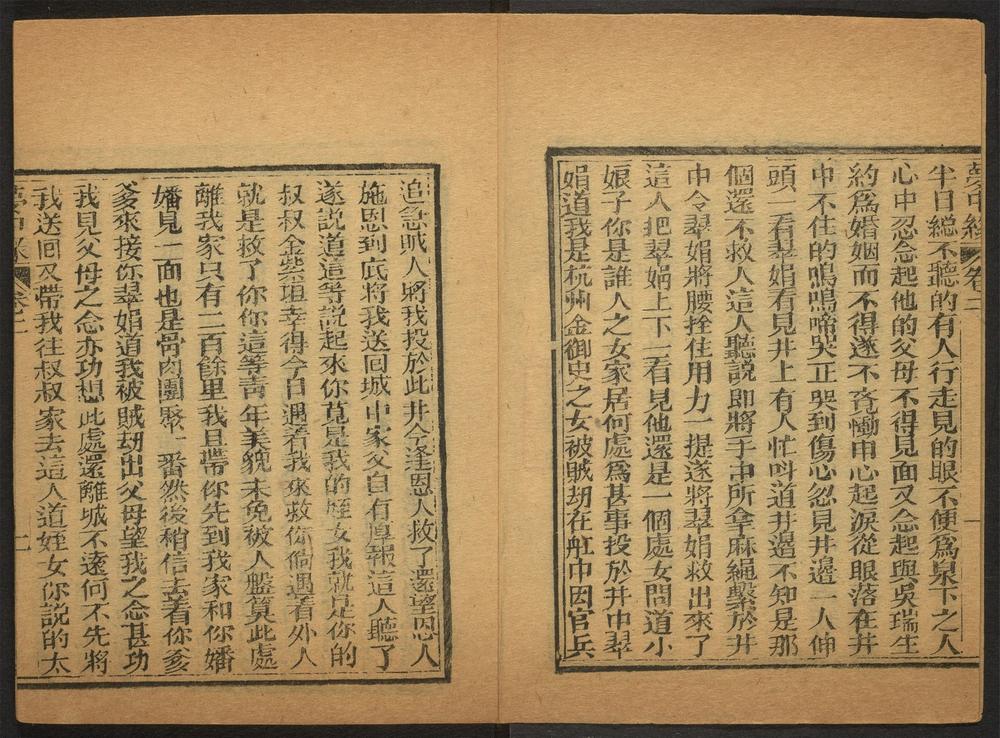 夢中緣 卷二
半日總不聽的有人行走見的眼不便爲泉下之人
心中忍念起他的父母不得見面又念起與吳瑞生
約爲婚姻而不得遂不𮎰慟申心起淚從眼落在井
中不住的嗚嗚啼哭正哭到傷心忽見井邊一人伸
頭一看翠娟看見井上有人忙呌道井邊不知是那
個還不救人這人聽説即將手中所拿麻繩繫於井
中令翠娟將腰拴住用力一提遂將翠娟救出來了
這人把翠娟上下一看見他還是一個處女問道小
娘子你是誰人之女家居何處爲甚事投於井中翠
娟道我是杭州金御史之女被賊刼在舡中因官兵
追急賊人將我投於此井今逢恩人救了還望恩人
施恩到底將我送回城中家父自有厚報這人聽了
遂説道這等説起來你竟是我的姪女我就是你的
叔叔金紫垣幸得今日遇着我來救你倘遇着外人
就是救了你你這等青年美貌未免被人盤算此處
離我家只有二百餘里我且帶你先到我家和你嬸
嬸見一面也是骨肉團聚一番然後稍信去着你爹
爹來接你翠娟道我被賊刼出父母望我之念甚功
我見父母之念亦功想此處還離城不遠何不先將
我送回又帶我往叔叔家去這人道姪女你説的太
卷二